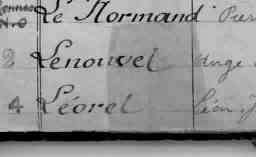 Le Normand
2 Lenouvel Ange
4 Léorel Léon